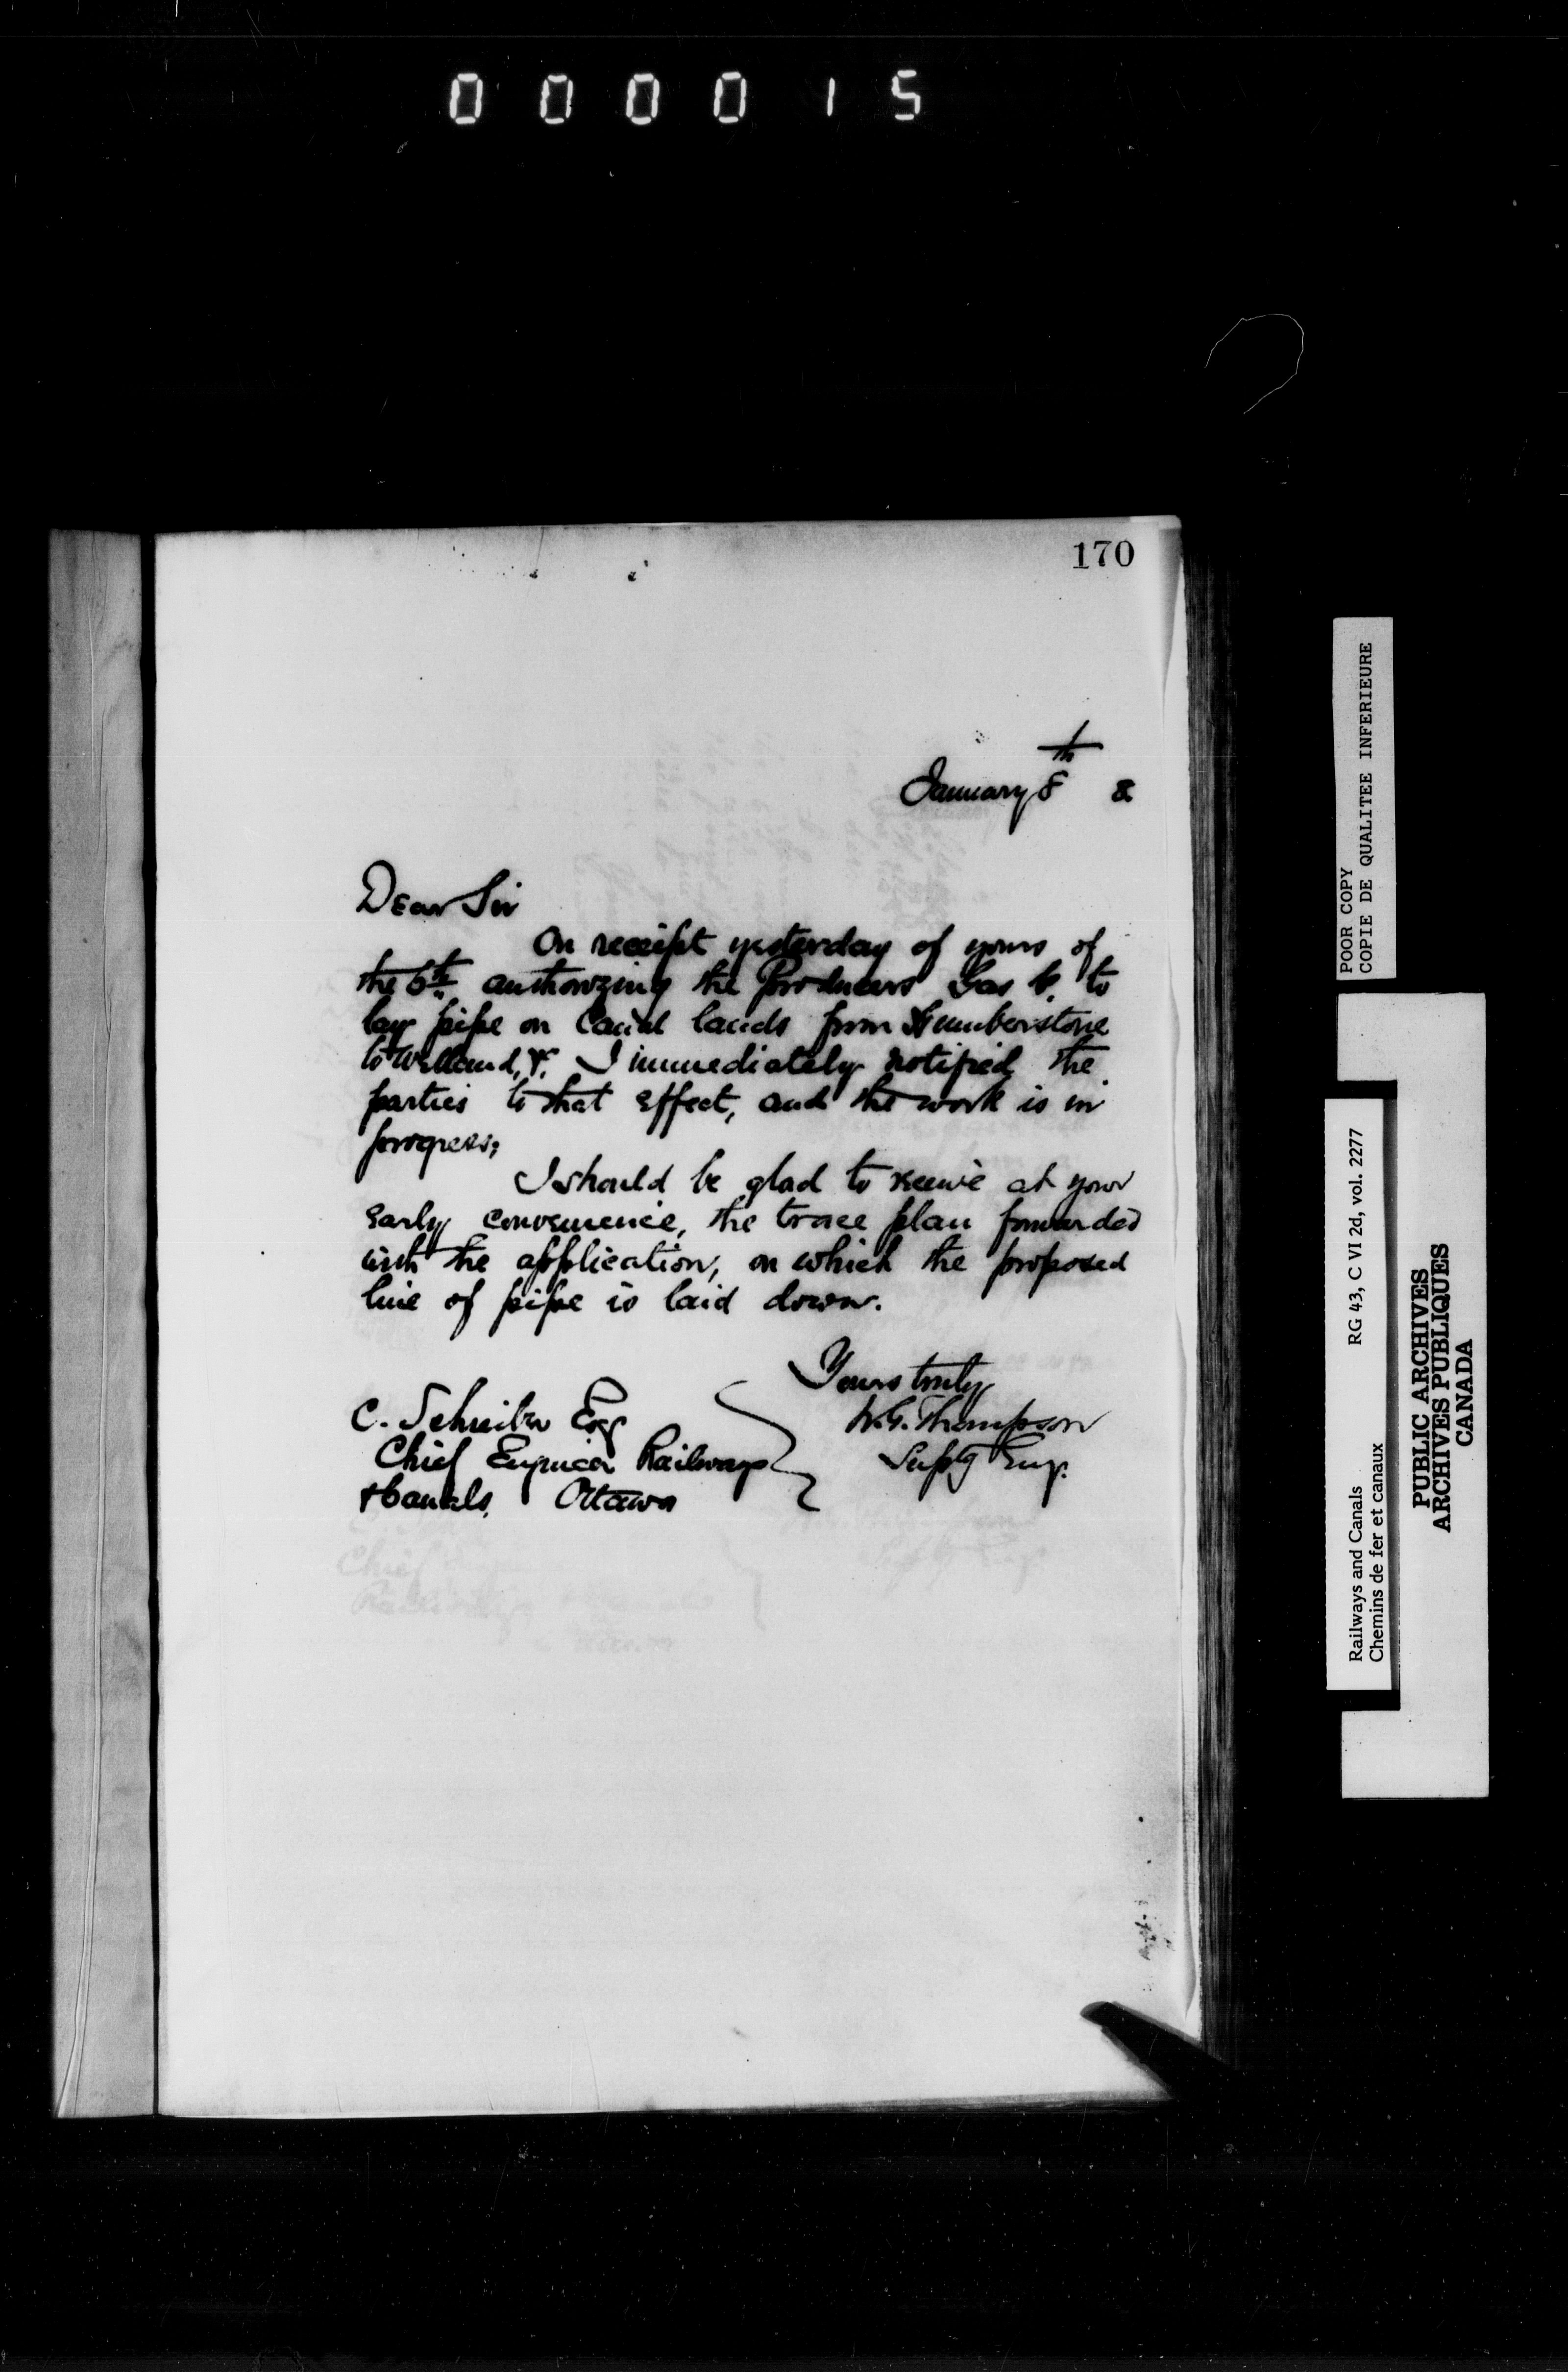 0 0 0 0 1 5
170
January 8th 8
Dear Sir
On receipt yesterday of yours of
the 6th authorizing the Producers Gas Co. to
lay pipe on Canal lands from Humberstone
to Welland, &c. I immediately notified the
parties to that effect, and the work is in
progress;
I should be glad to receive at your
early convenience, the trace plan forwarded
with the application, on which the proposed
line of pipe is laid down.
Yours truly
W.G. Thompson
Suptg Eng.
C. Schreiber Esq
Chief Engineer Railways
& Canals, Ottawa
POOR COPY
COPIE DE QUALITEE INFERIEURE
Railways and Canals RG 43, C VI 2d, vol. 2277
Chemins de fer et canaux
PUBLIC ARCHIVES
ARCHIVES PUBLIQUES
CANADA